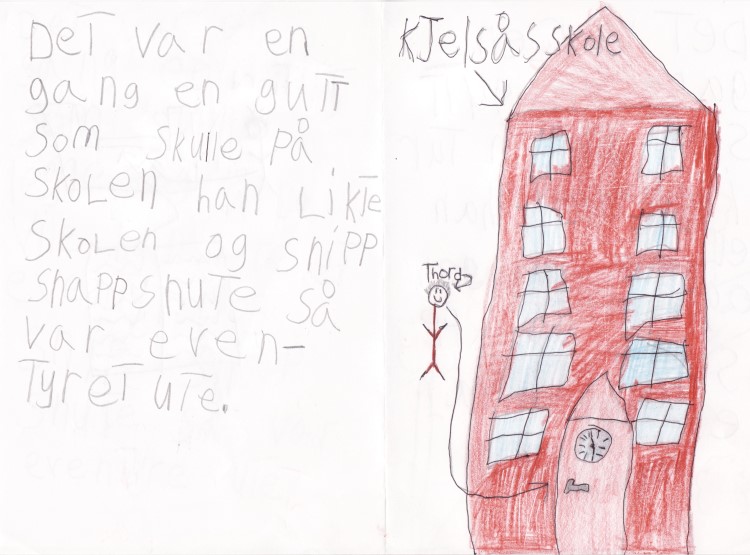 Det var en
gang en gutt
som skulle på
skolen han likte
skolen og snipp
snappsnute så
var even-
tyret ute.
Kjelsåsskole
Thord